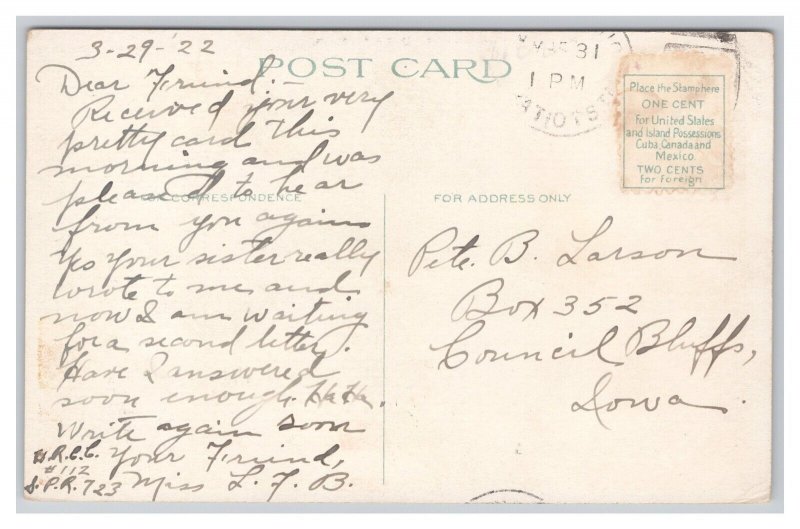 3-29-'22
Dear Friend.-
Received your very
pretty card this
morning and was
pleased to hear
from you again
Yes your sister really
wrote to me and
now I am waiting
for a second letter.
Have I answered
soon enough. Ha Ha.
Write again soon
Your Friend,
Miss L. F. B.
#112
S.P.R. 723
POST CARD
CORRESPONDENCE
FOR ADDRESS ONLY
MAR 31
1 PM
Place the Stamp here
ONE CENT
for United States
and Island Possessions
Cuba, Canada and
Mexico.
TWO CENTS
for foreign
Pete. B. Larson
Box 352
Council Bluffs,
Iowa.